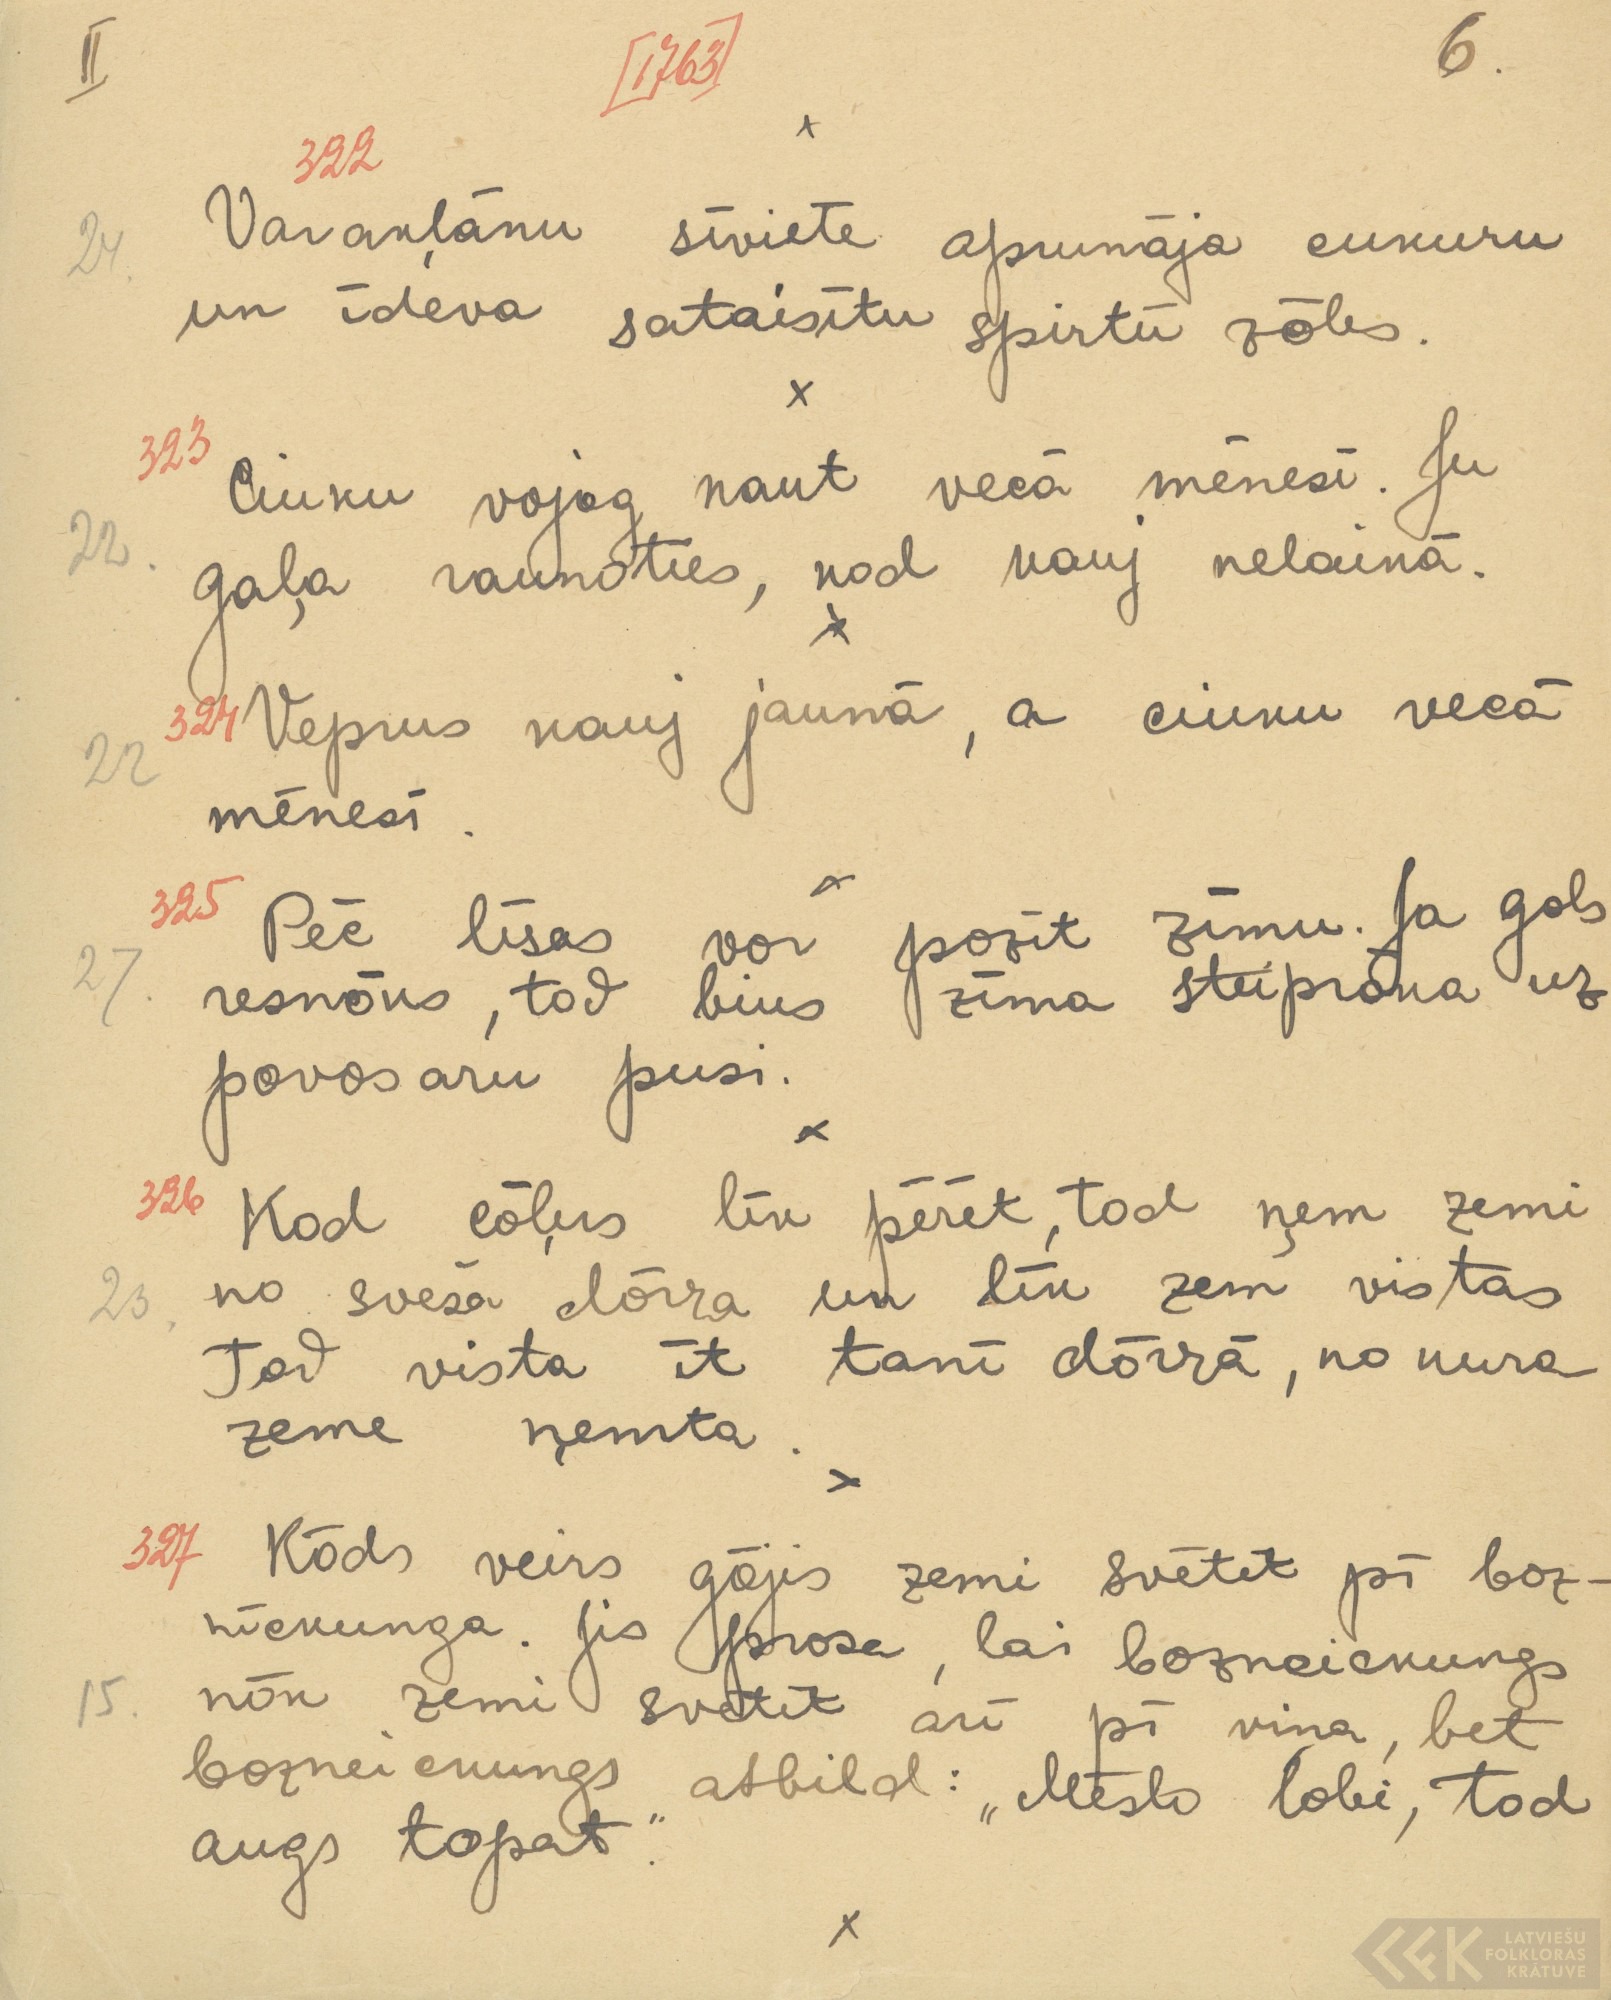 II [1763] 6.
x
322
24. Varakļānu sīviete aprunāja cukuru
un īdeva sataisītu spirtū zōles.
x
323 Ciuku vojag kaut vecā mēnesī. Ju
22. gaļa raunōties, kod kauj nelaikā.
x
324 Veprus kauj jaunā, a ciuku vecā
22 mēnesī.
x
325 Pēc līsas vor pozīt zīmu. Ja gols
27. resnōks, tod bius zīma stiprōka uz
povosaru pusi.
x
326 Kod cōļus līk pērēt, tod ņem zemi
23. no sveša dōrza un līk zem vistas
Tod vista īt tanī dōrzā, no kura
zeme ņemta.
x
327 Kōds veirs gōjis zemi svētīt pī boz-
nīckunga. Jis prosa, lai bozneickungs
15. nōk zemi svētīt arī pī viņa, bet
bozneickungs atbild: „Mēslo lobi, tod
augs topat".
x
LATVIEŠU
FOLKLORAS
KRĀTUVE